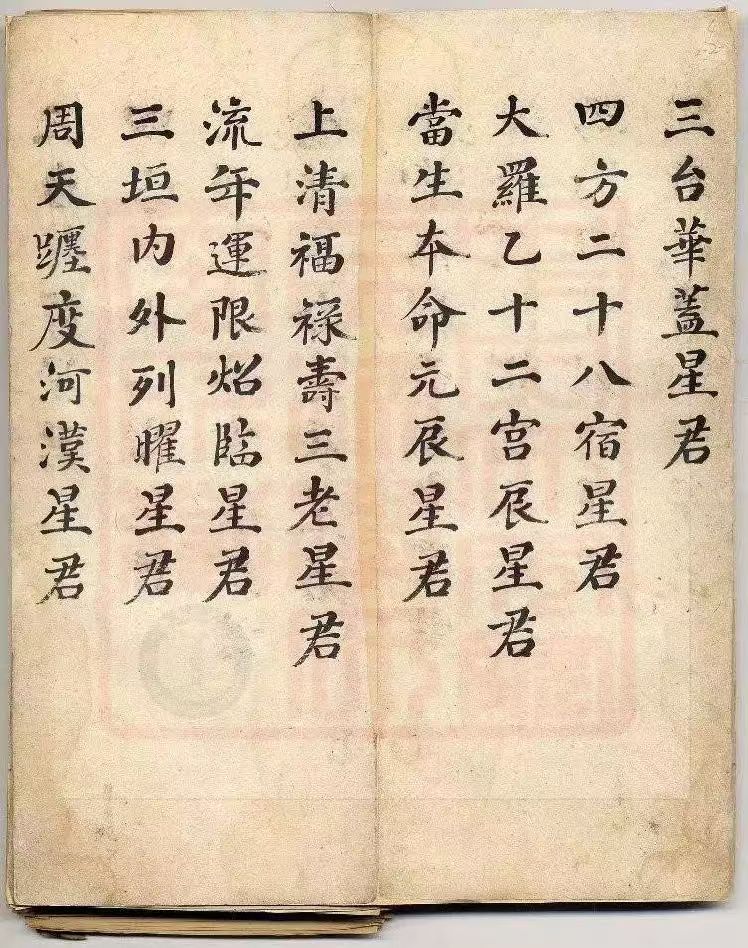 三台華蓋星君
四方二十八宿星君
大羅乙十二宮辰星君
當生本命元辰星君
上清福祿壽三老星君
流年運限炤臨星君
三垣內外列曜星君
周天躔度河漢星君